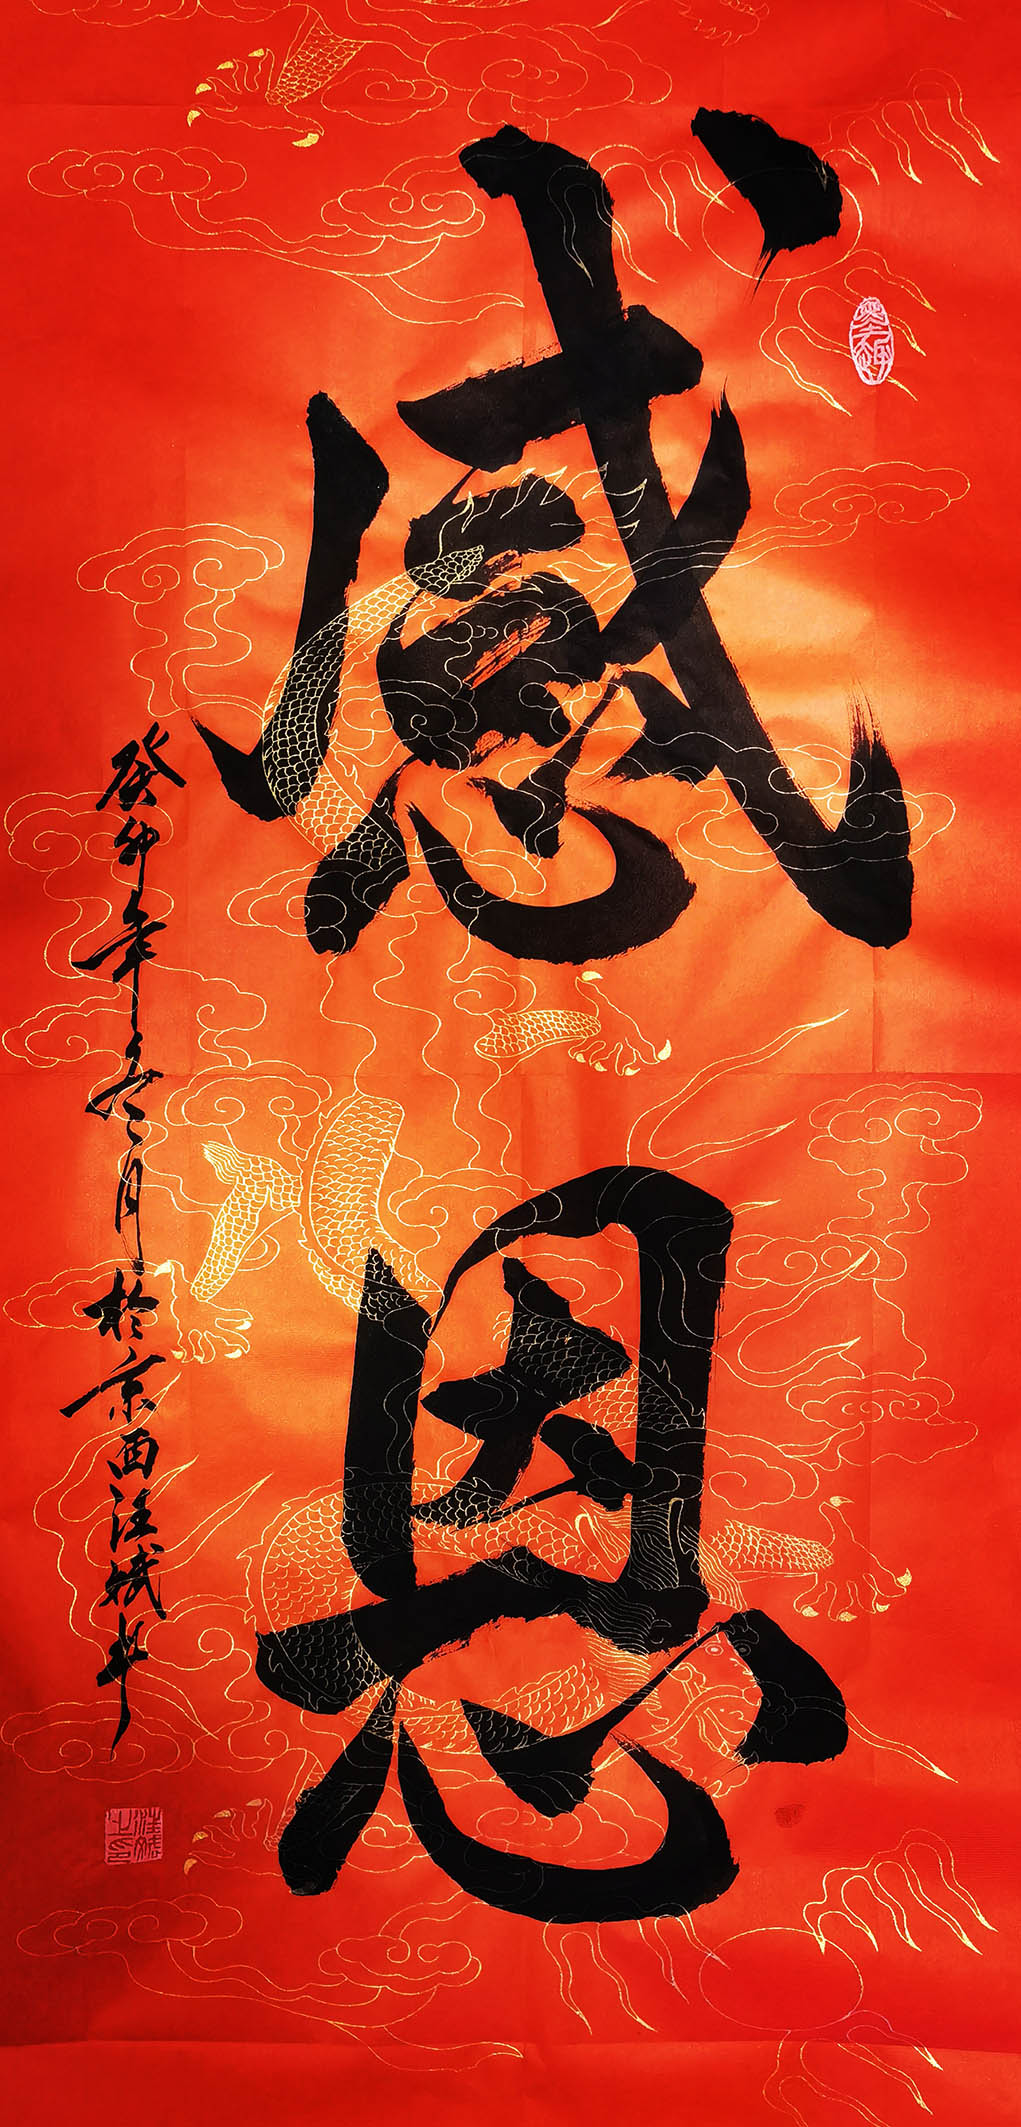 感恩
癸卯年冬月於京西汪斌书